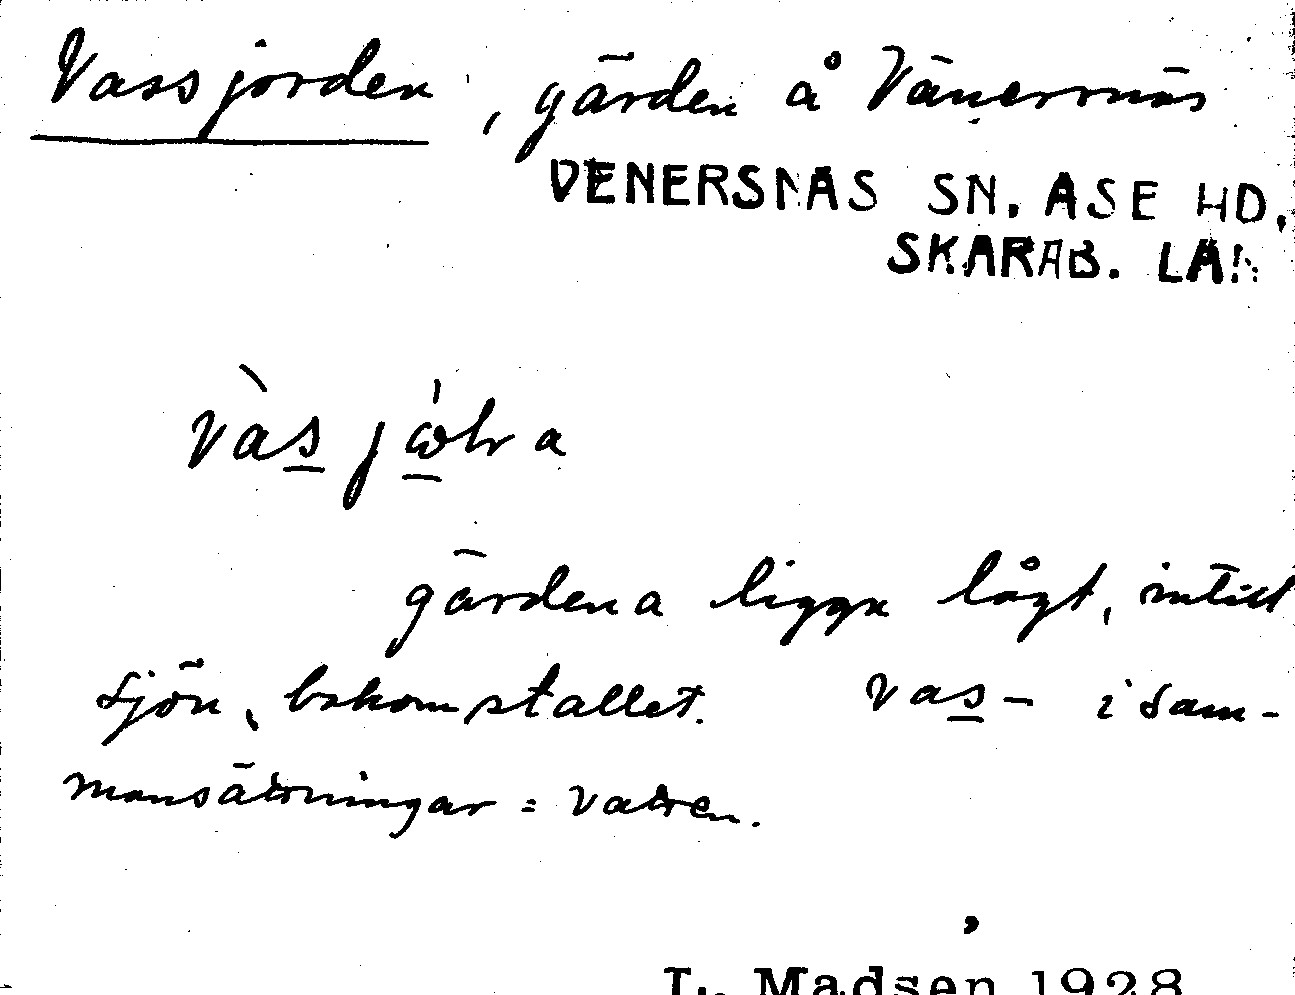 Vassjorden, gärden å Vänernäs
VENERSNÄS SN. ÅSE HD.
SKARAB. LÄN
gärdena ligga lågt, intill
sjön, bakom stallet. vas- i sam-
mansättningar = vatten.
L. Madsen 1928